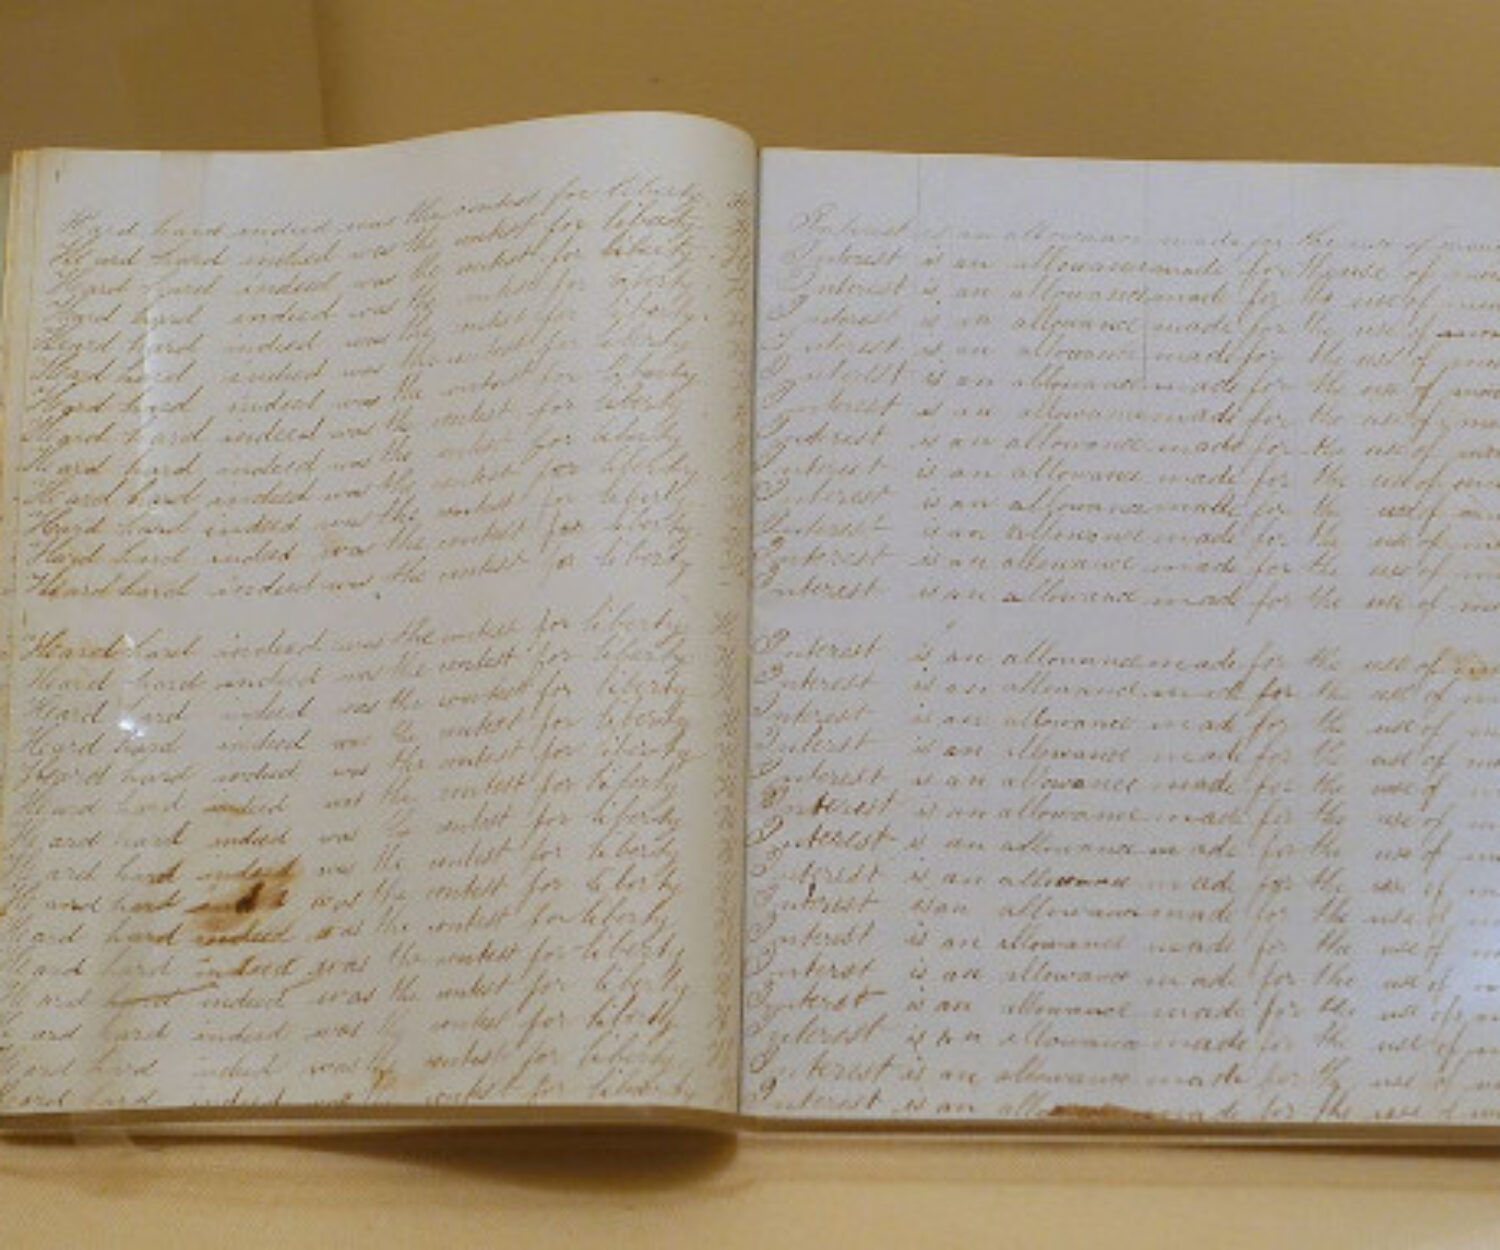 Hard hard indeed was the contest for liberty
Hard hard indeed was the contest for liberty
Hard hard indeed was the contest for liberty
Hard hard indeed was the contest for liberty
Hard hard indeed was the contest for liberty
Hard hard indeed was the contest for liberty
Hard hard indeed was the contest for liberty
Hard hard indeed was the contest for liberty
Hard hard indeed was the contest for liberty
Hard hard indeed was the contest for liberty
Hard hard indeed was the contest for liberty
Hard hard indeed was the contest for liberty
Hard hard indeed was the contest for liberty
Hard hard indeed was the contest for liberty
Hard hard indeed was the contest for liberty
Hard hard indeed was the contest for liberty
Hard hard indeed was the contest for liberty
Hard hard indeed was the contest for liberty
Hard hard indeed was the contest for liberty
Hard hard indeed was the contest for liberty
Hard hard indeed was the contest for liberty
Hard hard was the contest for liberty
Hard hard indeed was the contest for liberty
Hard hard indeed was the contest for liberty
Hard hard indeed was the contest for liberty
Hard hard indeed was the contest for liberty
Hard hard indeed was the contest for liberty
Hard hard indeed was the contest for liberty
Interest is an allowance made for the use of
Interest is an allowance made for the use of
Interest is an allowance made for the use of
Interest is an allowance made for the use of
Interest is an allowance made for the use of
Interest is an allowance made for the use of
Interest is an allowance made for the use of
Interest is an allowance made for the use of
Interest is an allowance made for the use of
Interest is an allowance made for the use of
Interest is an allowance made for the use of
Interest is an allowance made for the use of
Interest is an allowance made for the use of
Interest is an allowance made for the use of
Interest is an allowance made for the use of
Interest is an allowance made for the use of
Interest is an allowance made for the use of
Interest is an allowance made for the use of
Interest is an allowance made for the use of
Interest is an allowance made for the use of
Interest is an allowance made for the use of
Interest is an allowance made for the use of
Interest is an allowance made for the use of
Interest is an allowance made for the use of
Interest is an allowance made for the use of
Interest is an allowance made for the use of
Interest is an allowance made for the use of
Interest is an made for the use of